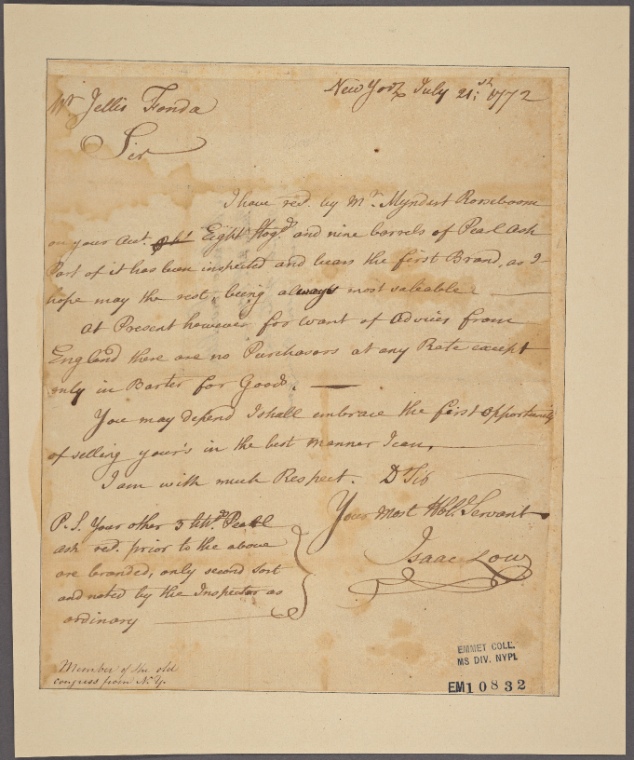 New York July 21.st 1772
Mr Jellis Fonda
Sir
I have red. by Mr. Myndert Roseboom
on your Acct. Eight Hogds and nine barrels of Pearl Ash
Part of it has been inspected and bears the first Brand, as I
hope may the rest, being always most saleable
At Present however for want of Advices from
England there are no Purchasors at any Rate except
only in Barter for Goods.
You may depend I shall embrace the first opportunity
of selling your's in the best manner I can,
I am with much Respect. D Sir
Your Most Hble. Servant
Isaac Low
P.S. Your other 5 Pearl
ash red. prior to the above
are branded, only second Sort
and noted by the Inspector as
ordinary
Member of the old
congress from N.Y.
EMMET COLL.
MS DIV. NYPL
EM10832